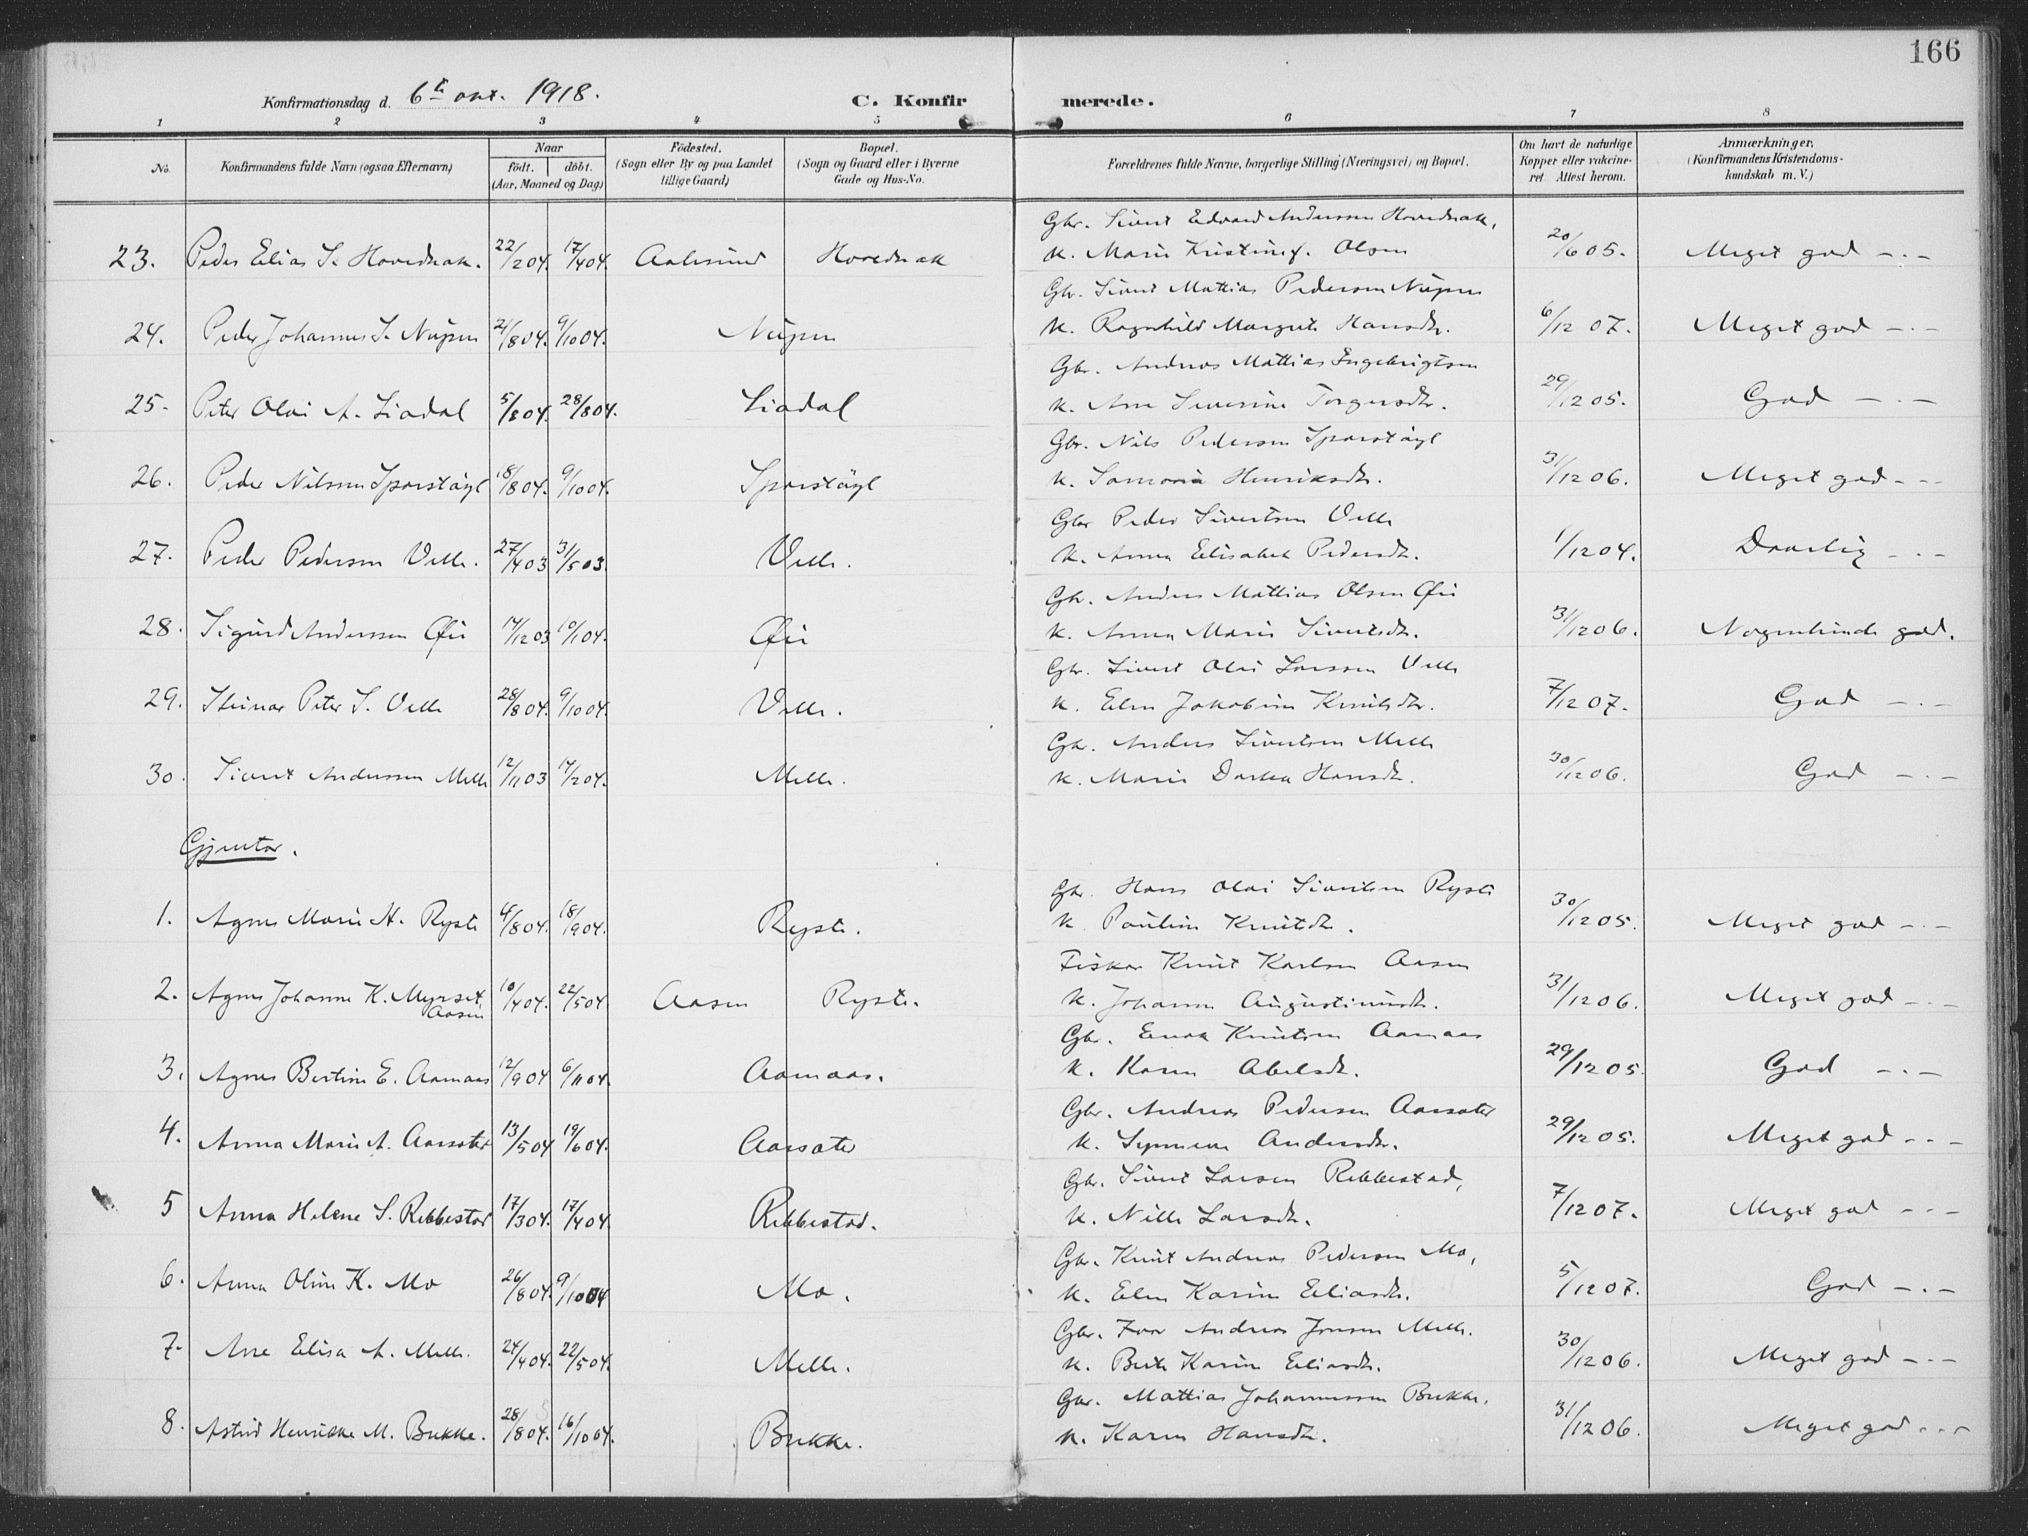 166
Konfirmationsdag d. 6te okt. 1918.
C. Konfirmerede.
1 2 3 4 5 6 7 8
No.
Konfirmandens fulde Navn (ogsaa Efternavn)
Naar
födt. döbt.
(Aar, Maaned og Dag)
Födested.
(Sogn eller By og paa Landet
tillige Gaard)
Bopæl.
(Sogn og Gaard eller i Byerne
Gade og Hus-No.
Forældrenes fulde Navne, borgerlige Stilling (Næringsvei) og Bopæl.
Om havt de naturlige
Kopper eller vakcine-
ret. Attest herom.
Anmærkninger,
(Konfirmandens Kristendoms-
kundskab m. V.)
Gbr. Sivert Edvard Andersen Hovednak,
23. Peder Elias S. Hovednak. 22/2 04. 17/4 04. Aalesund Hovednak K. Marie Kristine f. Olsen 20/6 05. Meget god -.-
Gbr. Sivert Mattias Pedersen Nupen
24. Peder Johannes S. Nupen 21/8 04. 9/10 04. Nupen K. Ragnhild Margrete Hansdtr. 6/12 07. Meget god -.-
Gbr. Andreas Mattias Engebrigtsen
25. Peter Olai A. Liadal 5/8 04. 28/8 04. Liadal K. Ane Severine Torgersdtr. 29/12 05. God -.-
Gbr. Nils Pedersen Sporstøyl
26. Peder Nilssen Sporstøyl 18/8 04. 9/10 04. Sporstøyl K. Samoria Henriksdtr. 31/12 06. Meget god -.-
Gbr Peder Sivertsen Velle
27. Peder Pedersen Velle. 27/4 03 31/5 03. Velle. K. Anna Elisabet Pedersdtr. 1/12 04. Daarlig -.-
Gbr. Anders Mattias Olsen Øie
28. Sigurd Anderssen Øie 14/12 03 10/1 04. Øie K. Anna Marie Sivertsdtr. 31/12 06. Nogenlunde god.
Gbr. Sivert Olai Larssen Velle
29. Steinar Peter S. Velle 28/8 04. 9/10 04. Velle. K. Elen Jakobine Knutsdtr. 7/12 07. God -.-
Gbr. Anders Sivertsen Melle
30. Sivert Anderssen Melle 12/11 03 14/2 04. Melle. K. Marie Dortea Hansdtr. 30/12 06. God -.-
Gjentor.
Gbr. Hans Olai Sivertsen Ryste
1. Agnes Marie H. Ryste 4/8 04. 18/9 04. Ryste. K. Pauline Knutsdtr. 30/12 05. Meget god -.-
Fisker Knut Karlsen Aasen
2. Agnes Johanne K. Myrset, Aasen 10/4 04. 22/5 04. Aasen Ryste. K. Johanne Augustinusdtr. 31/12 06. Meget god -.-
Gbr. Enok Knutsen Aamaas
3. Agnes Bertine E. Aamaas 12/9 04 6/11 04. Aamaas. K. Karen Abelsdtr. 29/12 05. God -.-
Gbr. Andreas Pedersen Aarsater
4. Anna Marie A. Aarsater 13/5 04 19/6 04. Aarsater K. Synneva Andersdtr. 29/12 05. Meget god -.-
Gbr. Sivert Larsen Ribbestad,
5 Anna Helene S. Ribbestad 17/3 04. 17/4 04. Ribbestad. K. Nille Larsdtr. 7/12 07. Meget god -.-
Gbr. Knut Andreas Pedersen Mo,
6. Anna Oline K. Mo 26/8 04. 9/10 04 Mo. K. Elen Karine Eliasdtr. 5/12 07. God -.-
Gbr. Ivar Andreas Jonsen Melle.
7. Ane Elisa A. Melle. 24/4 04. 22/5 04. Melle. K. Berte Karine Eliasdtr. 30/12 06. Meget god -.-
Gbr. Mattias Johannessen Bukke.
8. Astrid Henrikke M. Bukke. 28/8 04. 16/10 04. Bukke. K. Karen Hansdtr. 31/12 06. Meget god -.-